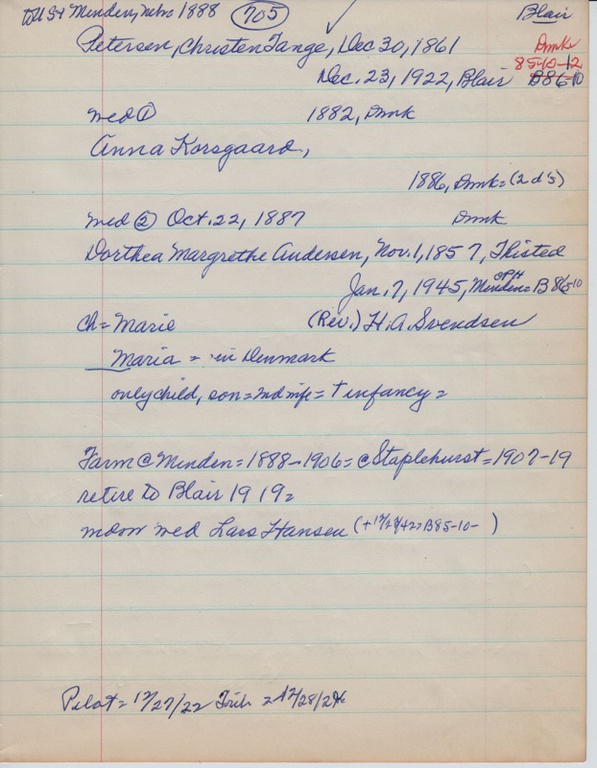 to US+ Minden, Nebr 1888 705 Blair
Petersen, Christen Tange, Dec 30, 1861 Dmk
85-10-12
Dec. 23, 1922, Blair B86-10
wed ① 1882, Dmk
Anna Korsgaard,
1886, Dmk= (2 d's)
wed ② Oct. 22, 1887 Dmk
Dorthea Margrethe Andersen, Nov. 1, 1857, Thisted
Jan. 7, 1945, Minden= B86-10
ch= Marie (Rev.) H. A. Svendsen
Maria = in Denmark
only child, son = 2nd wife = † infancy =
Farm @ Minden = 1888-1906 = @ Staplehurst = 1907-19
retire to Blair 1919=
widow wed Lars Hansen B85-10- )
Pilot = 12/27/22 Trib =